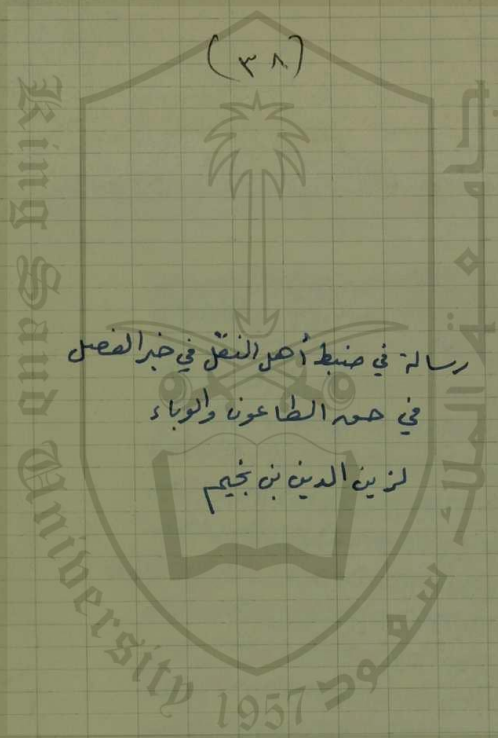 (٣٨)
رسالة في ضبط أهل النقل في خبر الفصل
في حق الطاعون والوباء
لزين الدين بن نجيم
King Saud University 1957